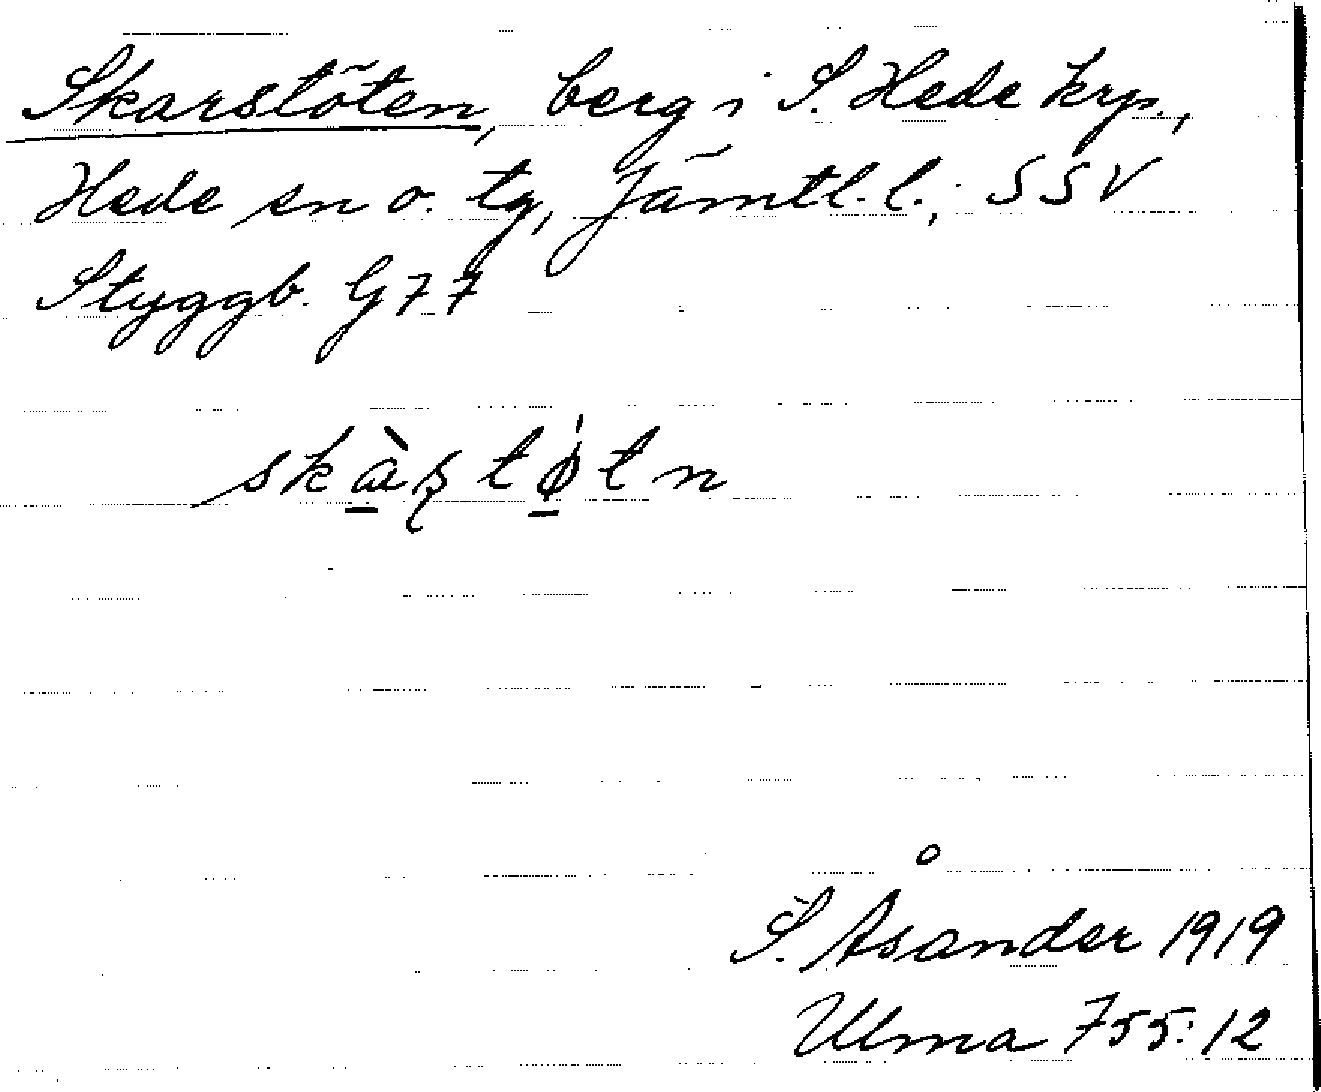 Skarstöten, berg i S. Hede krp.,
Hede sn o. tg, Jämtl. l.; SSV
Styggb. G 77
skæ̱̀ʂtø̱̍tn
S. Åsander 1919
Ulma 755:12